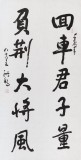 回車君子量
負荆大將風